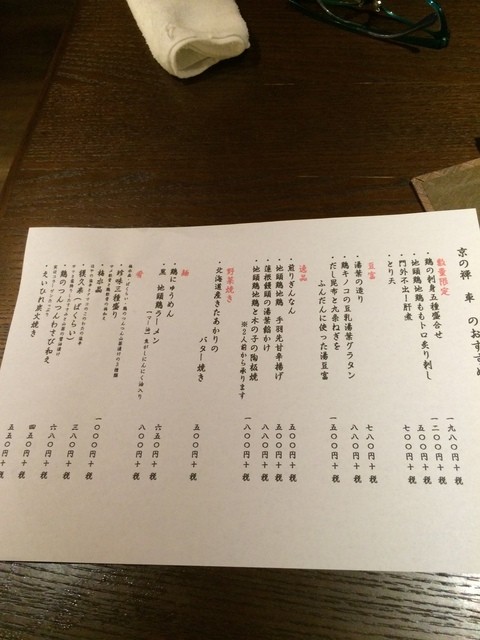 京の禅 車 のおすすめ
数量限定
・鶏の刺身五種盛合せ 一九八〇円+税
・地頭鶏地鶏ももトロ炙り刺し 一二〇〇円+税
・門外不出!肝煮 五〇〇円+税
・とり天 七〇〇円+税
豆富
・湯葉の造り 七八〇円+税
・鶏キノコの豆乳湯葉グラタン 八八〇円+税
・だし昆布と九条ねぎを
ふんだんに使った湯豆富 一五〇〇円+税
逸品
・煎りぎんなん 五〇〇円+税
・地頭鶏地鶏 手羽先甘辛揚げ 五〇〇円+税
・蓮根饅頭の湯葉餡かけ 八八〇円+税
・地頭鶏地鶏と木の子の陶板焼 一八〇〇円+税
※2人前から承ります
野菜焼き
・北海道産きたあかりの
バター焼き 五〇〇円+税
麺
・鶏にゅうめん 六五〇円+税
・黒 地頭鶏ラーメン 八〇〇円+税
(マー油)生がしにんにく油入り
肴
・珍味三種盛り 一〇〇〇円+税
・梅水晶 三八〇円+税
・莫久来(ばくらい) 六八〇円+税
・鶏のつんつんわさび和え 四五〇円+税
・えいひれ炭火焼き 五五〇円+税